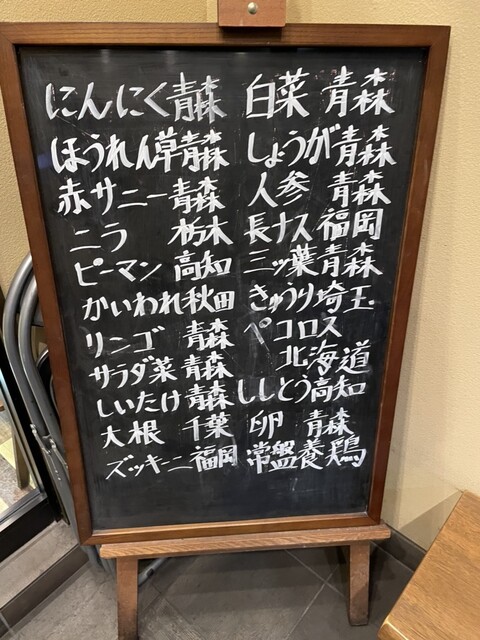 にんにく青森 白菜 青森
ほうれん草青森 しょうが青森
赤サニー青森 人参 青森
ニラ 栃木 長ナス 福岡
ピーマン 高知 三ッ葉青森
かいわれ秋田 きゅうり埼玉
リンゴ 青森 ペコロス
サラダ菜 青森 北海道
しいたけ 青森 ししとう高知
大根 千葉 卵 青森
ズッキーニ福岡 常盤養鶏